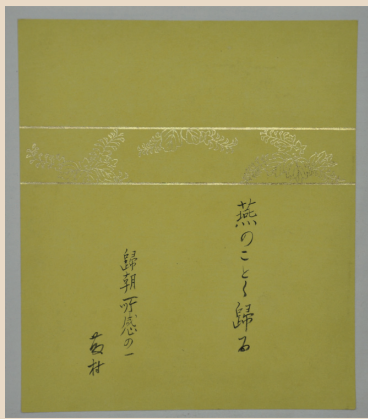 燕のことく歸る
歸朝所感の一
藤村